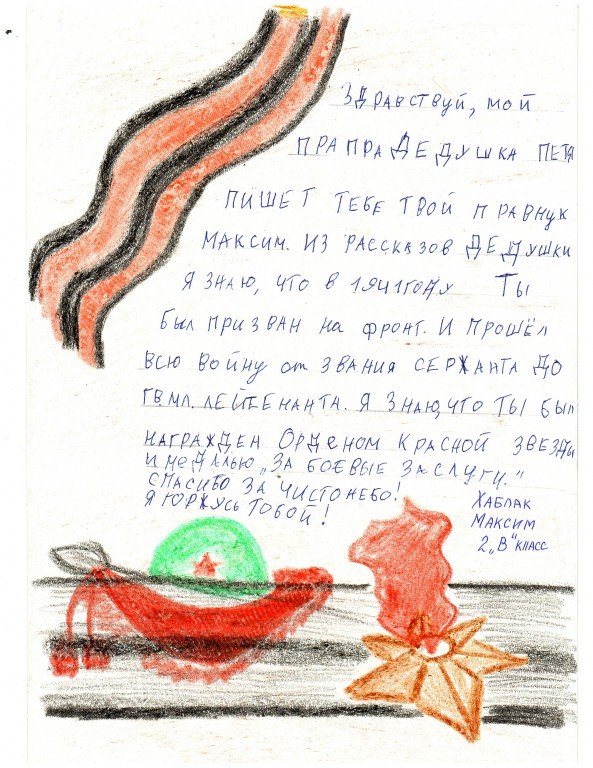 Здравствуй, мой
прапрадедушка Петя
пишет тебе твой правнук
Максим. Из рассказов дедушки
я знаю, что в 1941году Ты
был призван на фронт. И прошёл
всю войну от звания сержанта до
гв.мл. лейтенанта. Я знаю, что ты был
награжден Орденом Красной звезды
и медалью „За боевые заслуги."
спасибо за чисто небо!
Я горжусь тобой!
Хаблак
Максим
2„В" класс